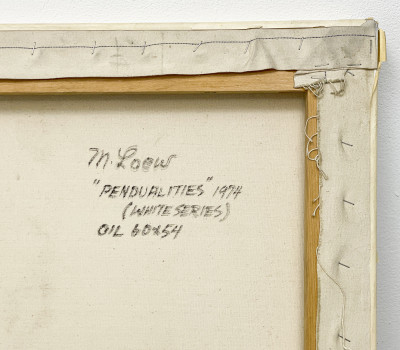 M. Loew
"PENDUALITIES" 1974
(WHITE SERIES)
OIL 60x54